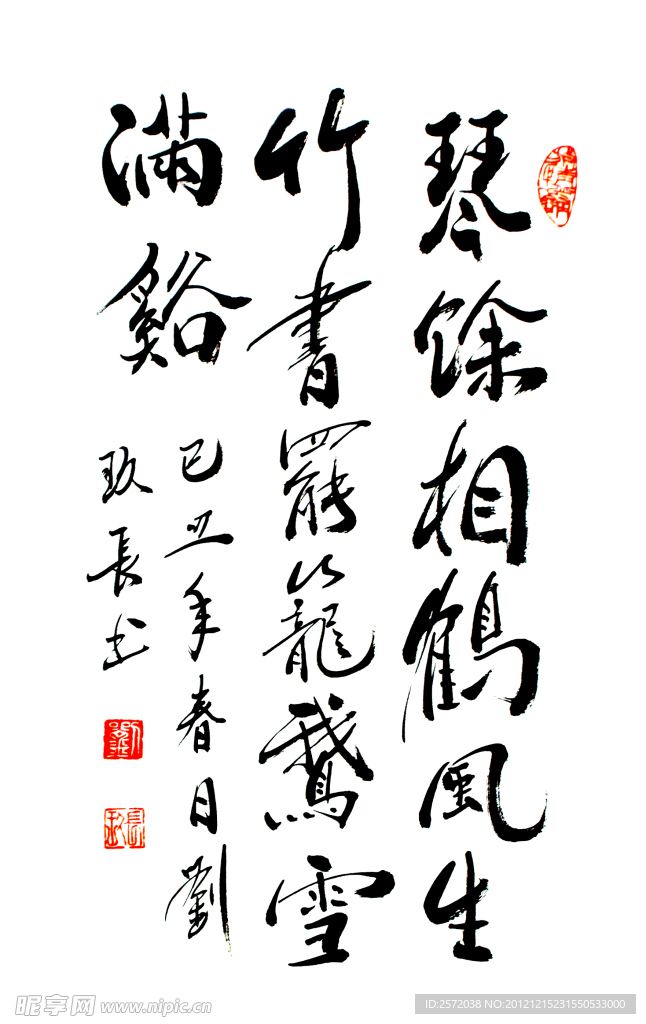 琴馀相鹤風生
竹書罷籠鵝雪
滿谿
己丑年春日劉
玖長书
昵享网 www.nipic.cn
ID:2572038 NO:20121215231550533000